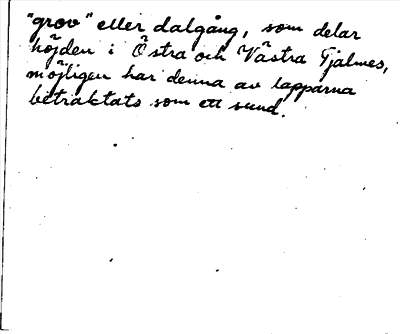 "grov" eller dalgång, som delar
höjden i Östra och Västra Tjalmes,
möjligen har denna av lapparna
betraktats som ett sund.